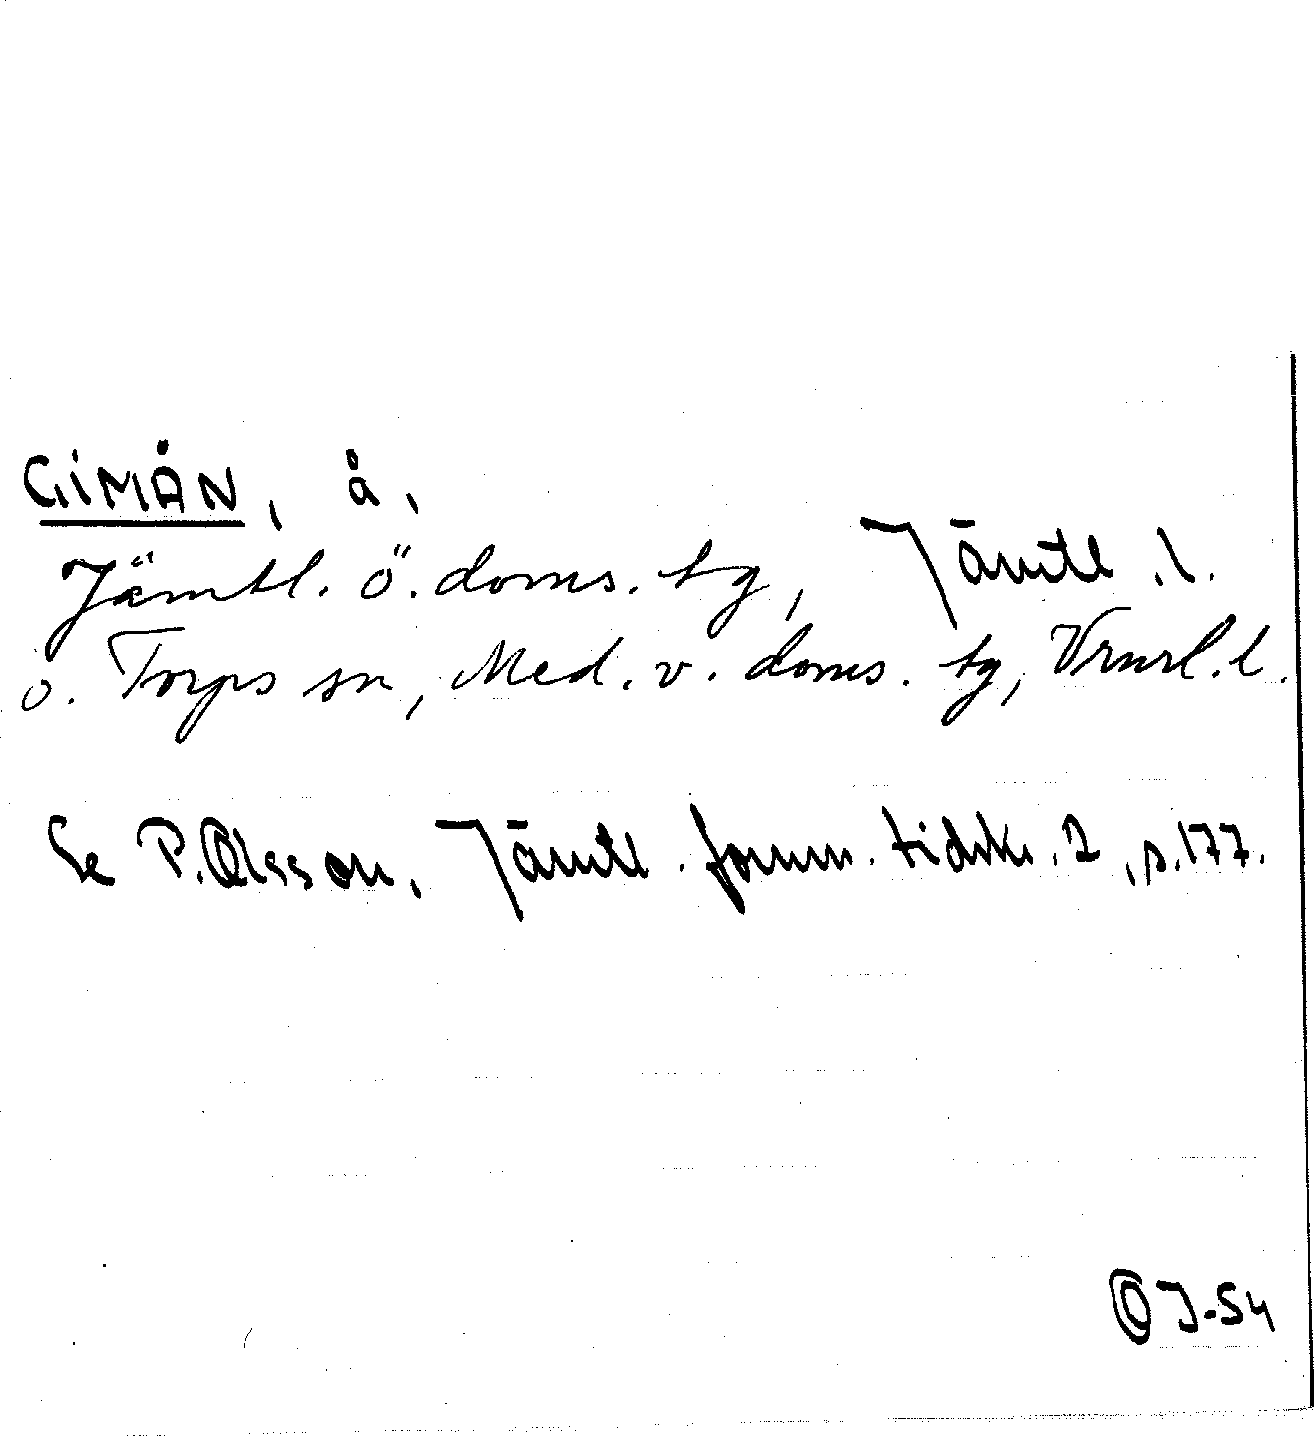 GIMÅN, å,
Jämtl. ö. doms. tg, Jämtl. l.
o. Torps sn, Med. v. doms. tg, Vrnrl. l.
Se P. Olsson, Jämtl. fornm. tidskr. 2, s. 177.
J-54